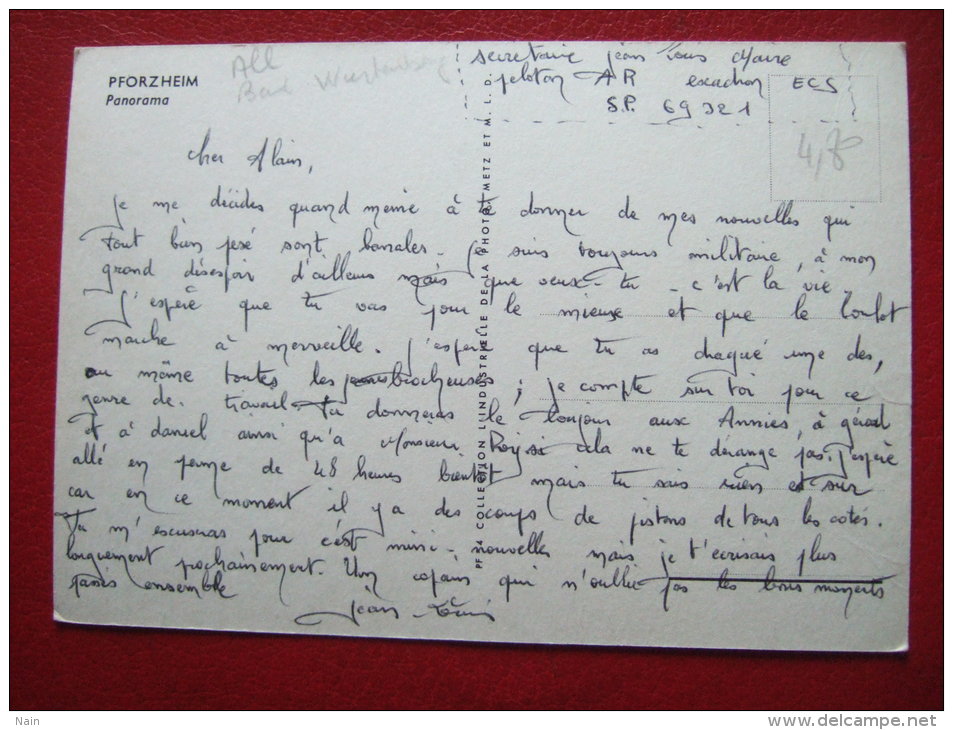 PFORZHEIM
Panorama
All
Bad Wurtemberg
secretaire jean Louis Maire
peloton AR escadron ECS
S.P. 69321
4,80
cher Alain,
je me décides quand meme à te donner de mes nouvelles qui
tout bien pesé sont banales. je suis toujours militaire, à mon
grand désespoir d'ailleurs mais que veux-tu - c'est la vie.
J'espère que tu vas pour le mieux et que le boulot
marche à merveille. J'espère que tu as dragué une des,
ou même toutes les ; je compte sur toi pour ce
genre de travail. Tu donneras le bonjour aux Annies, à gérard
et à daniel ainsi qu'a Monsieur Roy si cela ne te dérange pas. J'espère
allé en perme de 48 heures bientôt mais tu sais rien est sur
car en ce moment il y a des coups de pistons de tous les cotés.
Tu m'escuseras pour cést mini-nouvelles mais je t'ecrirais plus
longuement prochainement. Un copain qui n'oublie pas les bons moments
passés ensemble
jean-Louis
PF 24 COLLECTION L'INDUSTRIELLE DE LA PHOTO METZ ET M. L. D.
Nain
www.delcampe.net